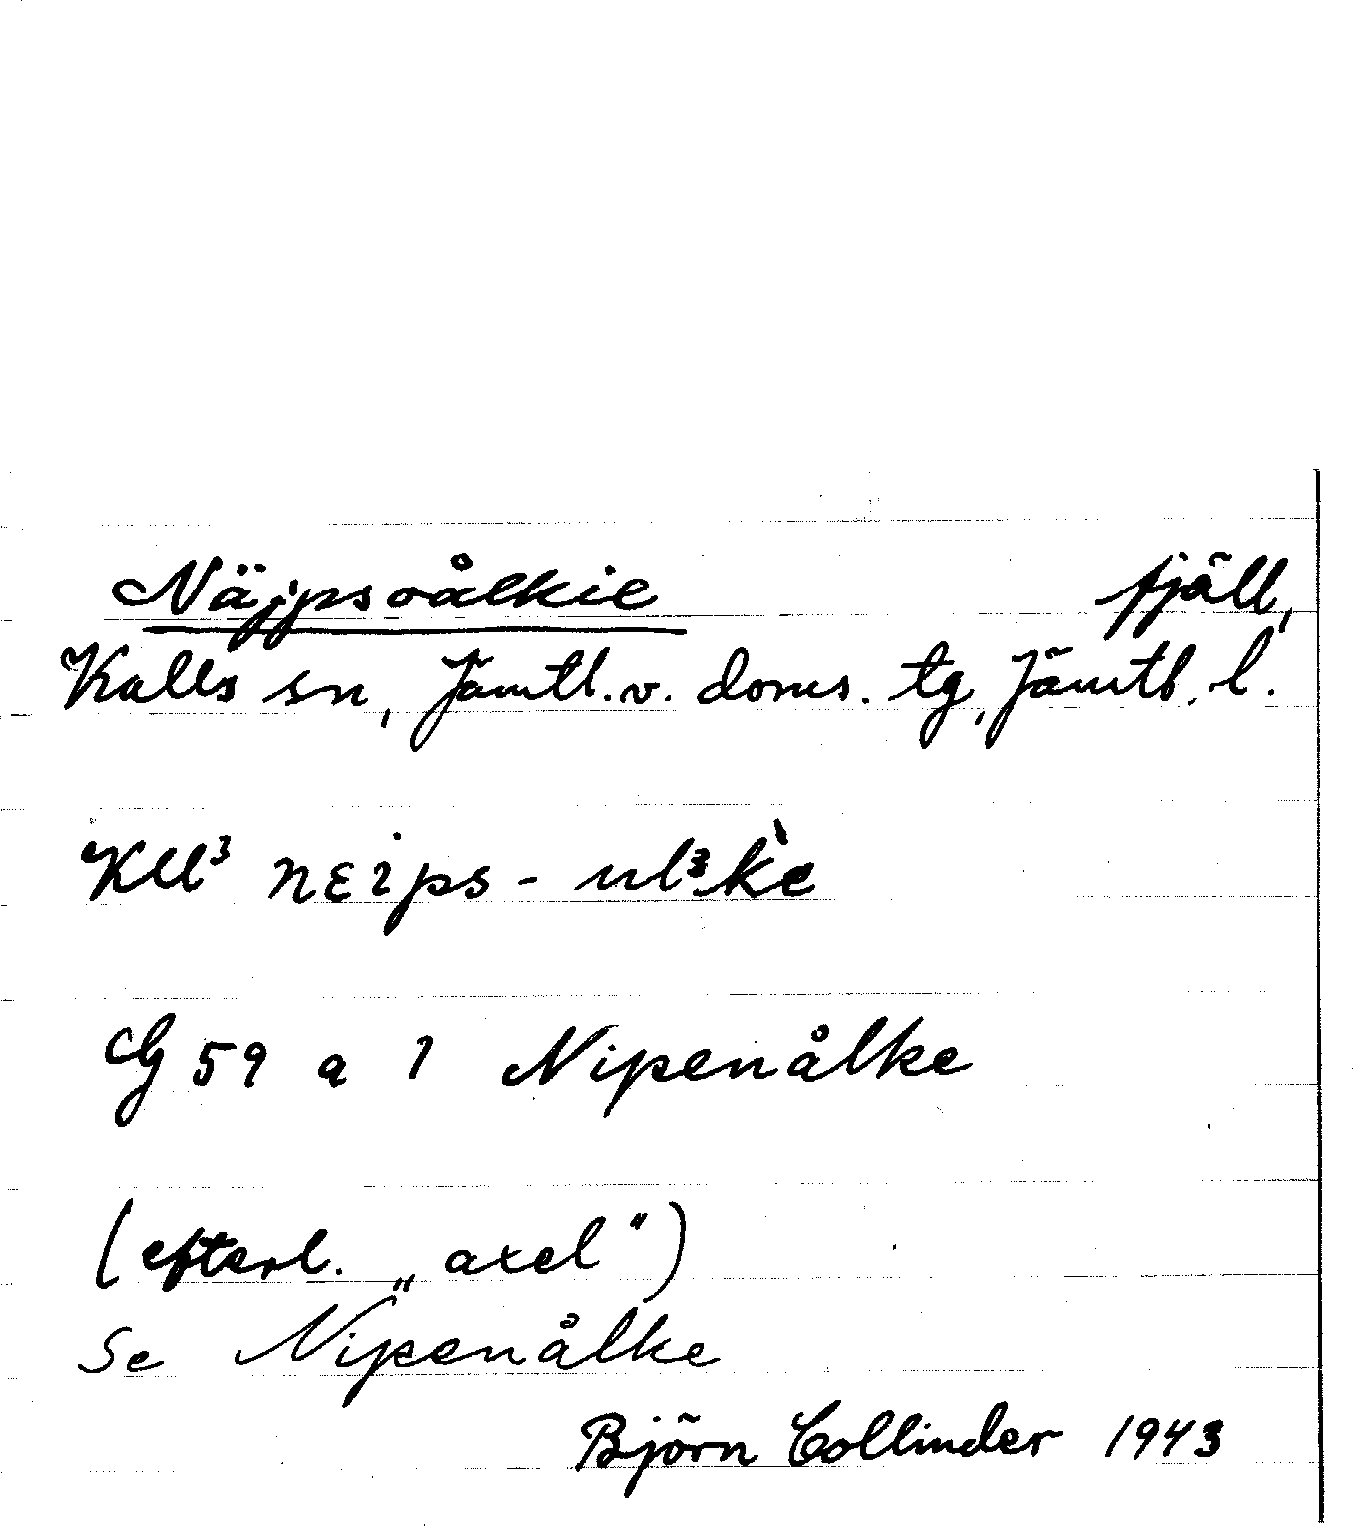 Näjpsoålkie fjäll,
Kalls sn, Jämtl. v. doms. tg, Jämtl. l.
Kll³ nɛips - ul³k̀e
G 59 a 1 Nipenålke
(efterl. „axel“)
Se Nipenålke
Björn Collinder 1943